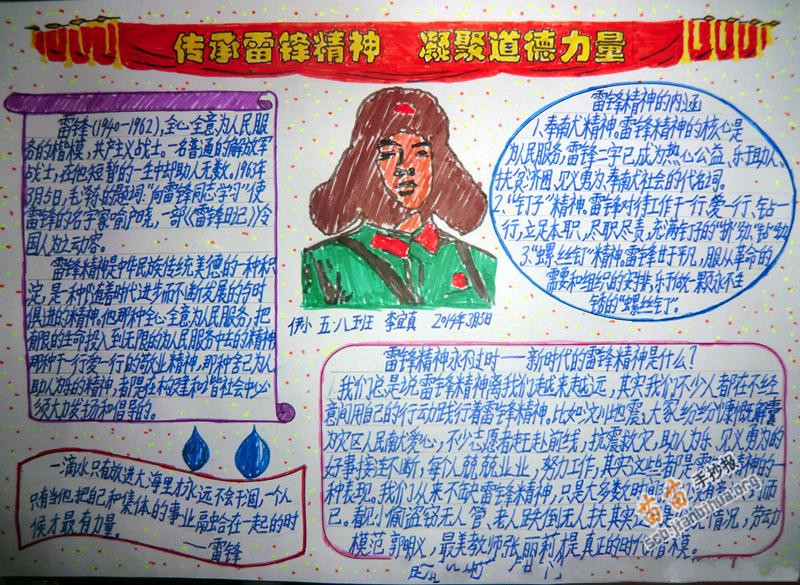 传承雷锋精神 凝聚道德力量
雷锋(1940—1962),全心全意为人民服
务的楷模,共产主义战士。一名普通的解放军
战士,在他短暂的一生中却助人无数。1963年
3月5日,毛泽东的题词:“向雷锋同志学习”使
雷锋的名字家喻户晓,一部《雷锋日记》令
国人为之动容。
雷锋精神是中华民族传统美德的一种积
淀,是一种随着时代进步而不断发展的与时
俱进的精神。他那种全心全意为人民服务,把
有限的生命投入到无限的为人民服务中去的精神
那种干一行爱一行的敬业精神,那种舍己为人
助人为乐的精神,都是在构建和谐社会中必
须大力发扬和倡导的。
一滴水只有放进大海里才永远不会干涸,一个人
只有当他把自己和集体的事业融合在一起的时
候才最有力量。
——雷锋
伊小 五·八班 李宜真 2014年3月5日
雷锋精神的内涵
1、奉献精神。雷锋精神的核心是
为人民服务,雷锋二字已成为热心公益、乐于助人、
扶贫济困、见义勇为、奉献社会的代名词。
2、“钉子”精神。雷锋对待工作干一行,爱一行、钻一
行,立足本职,尽职尽责,充满钉子的“挤”劲、“钻”劲
3.“螺丝钉”精神。雷锋甘于平凡,服从革命的
需要和组织的安排,乐于做一颗永不生
锈的“螺丝钉”。
雷锋精神永不过时——新时代的雷锋精神是什么?
我们总是说雷锋精神离我们越来越远,其实我们不少人都在不经
意间用自己的行动践行着雷锋精神。比如汶川地震,大家纷纷慷慨解囊
为灾区人民献爱心,不少志愿者赶赴前线,抗震救灾,助人为乐、见义勇为的
好事接连不断,每个人兢兢业业,努力工作,其实这些都是雷锋精神的一
种表现。我们从来不缺雷锋精神,只是大多数时间 没有 而
已。看见小偷盗窃无人管、老人跌倒无人扶其实 是 情况,劳动
模范郭明义,最美教师张丽莉才是真正的时代楷模。
苗苗手抄报
Shouchaobao.org